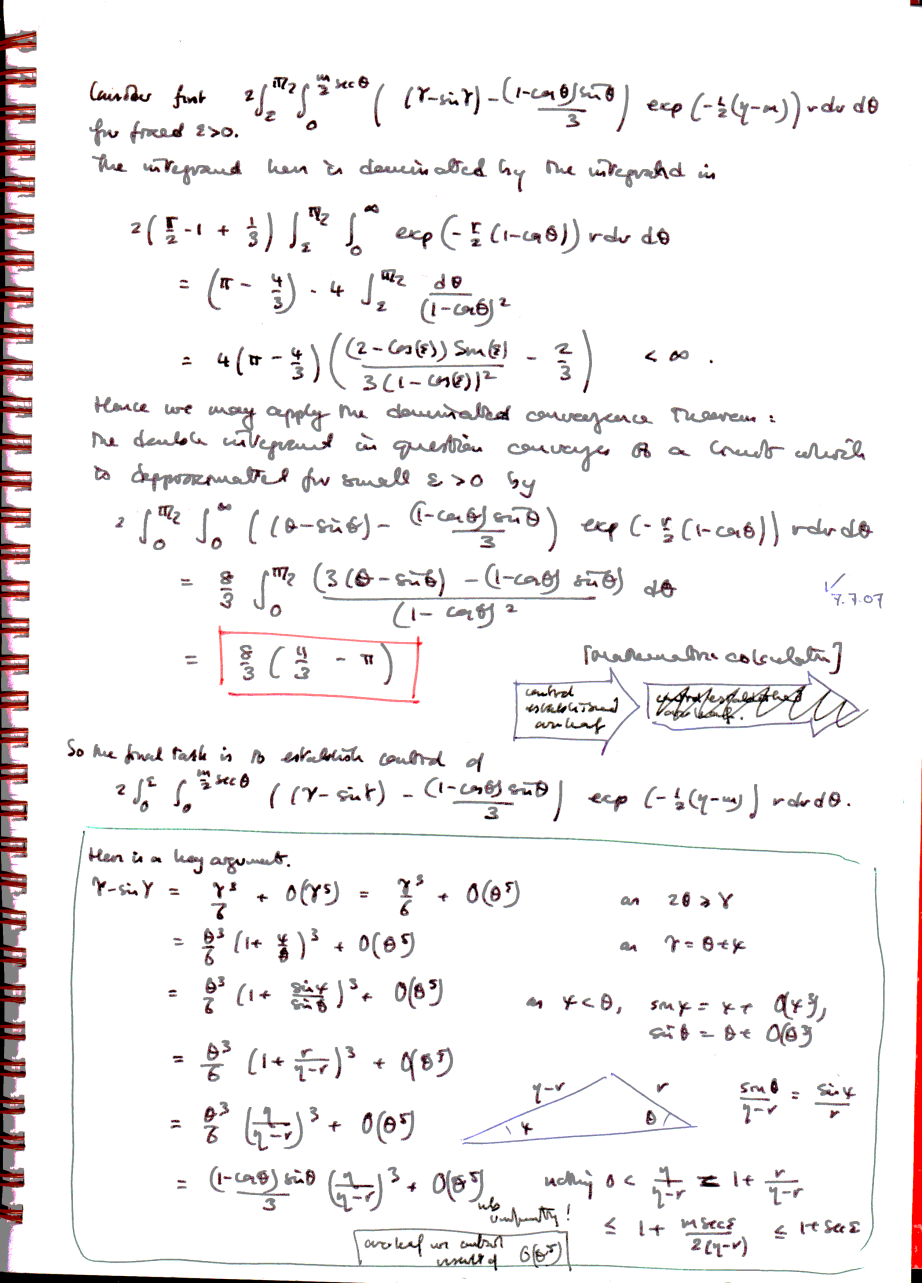 Consider first 2∫_ε^{π/2} ∫_0^{m/2 sec θ} ( (γ-sin γ) - (1-cos θ) sin θ / 3 ) exp(-½(η-m)) r dr dθ
for fixed ε>0.
The integrand here is dominated by the integrand in
2(π/2 - 1 + 1/3) ∫_ε^{π/2} ∫_0^∞ exp(-r/2 (1-cos θ)) r dr dθ
= (π - 4/3) · 4 ∫_ε^{π/2} dθ / (1-cos θ)²
= 4(π - 4/3) ( (2-Cos(ε)) Sin(ε) / 3(1-Cos(ε))² - 2/3 ) < ∞.
Hence we may apply the dominated convergence theorem:
the double integrand in question converges to a limit which
is approximated for small ε>0 by
2 ∫_0^{π/2} ∫_0^∞ ( (θ-sin θ) - (1-cos θ) sin θ / 3 ) exp(-r/2 (1-cos θ)) r dr dθ
= 8/3 ∫_0^{π/2} (3(θ-sin θ) - (1-cos θ) sin θ) / (1-cos θ)² dθ
7.7.07
= 8/3 ( 4/3 - π )
[mathematica calculation]
control
established
overleaf
So the final task is to establish control of
2 ∫_0^ε ∫_0^{m/2 sec θ} ( (γ-sin γ) - (1-cos θ) sin θ / 3 ) exp(-½(η-m)) r dr dθ.
Here is a key argument.
γ-sin γ = γ³/6 + O(γ⁵) = γ³/6 + O(θ⁵) as 2θ ≥ γ
= θ³/6 (1+ ψ/θ)³ + O(θ⁵) as γ = θ+ψ
= θ³/6 (1+ sin ψ / sin θ)³ + O(θ⁵) as ψ<θ, sin ψ = ψ + O(ψ³),
sin θ = θ + O(θ³)
= θ³/6 (1+ r/(η-r))³ + O(θ⁵)
η-r r θ ψ sin θ / (η-r) = sin ψ / r
= θ³/6 (η/(η-r))³ + O(θ⁵)
= (1-cos θ) sin θ / 3 (η/(η-r))³ + O(θ⁵) noting 0 < η/(η-r) = 1+ r/(η-r)
uniformly!
≤ 1 + m sec ε / 2(η-r) ≤ 1+ sec ε
overleaf we control
result of O(θ⁵)